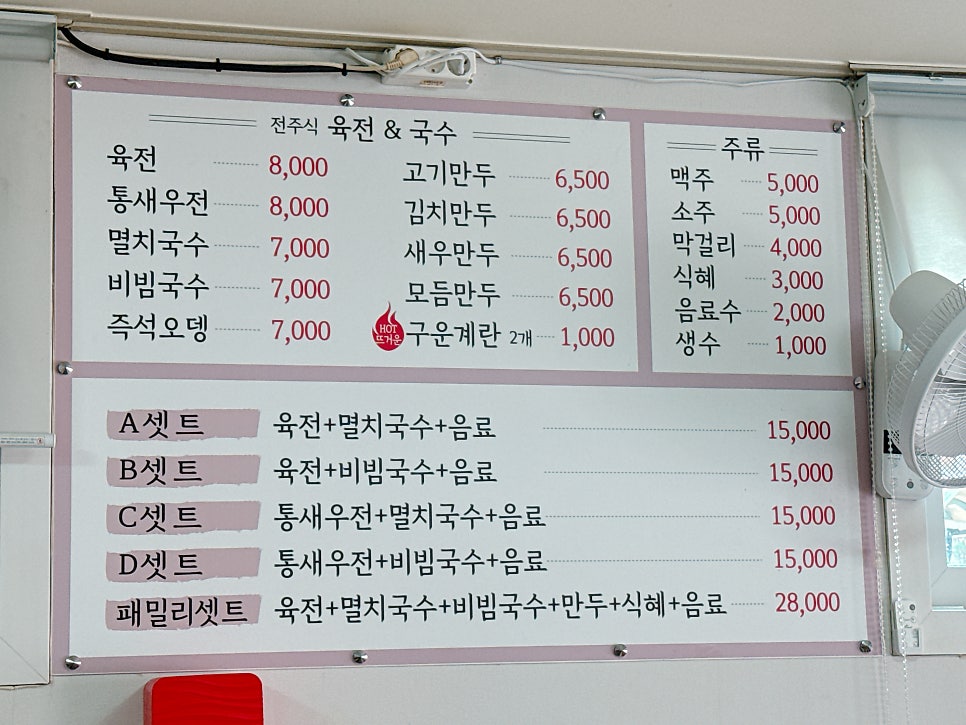 전주식 육전 & 국수
육전 8,000
통새우전 8,000
멸치국수 7,000
비빔국수 7,000
즉석오뎅 7,000
고기만두 6,500
김치만두 6,500
새우만두 6,500
모듬만두 6,500
HOT
뜨거운
구운계란 2개 1,000
주류
맥주 5,000
소주 5,000
막걸리 4,000
식혜 3,000
음료수 2,000
생수 1,000
A셋트 육전+멸치국수+음료 15,000
B셋트 육전+비빔국수+음료 15,000
C셋트 통새우전+멸치국수+음료 15,000
D셋트 통새우전+비빔국수+음료 15,000
패밀리셋트 육전+멸치국수+비빔국수+만두+식혜+음료 28,000